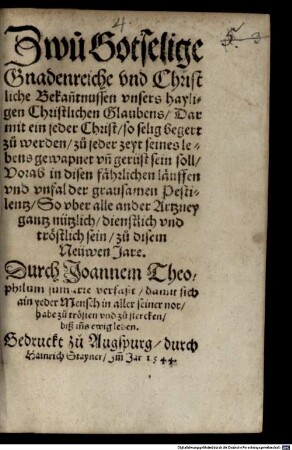 4.
5.
Zwů Gotselige
Gnadenreiche vnd Christ
liche Bekañtnussen vnsers hayli
gen Christlichen Glaubens/ Dar
mit ein jeder Christ/ so selig begert
zů werden/ zů jeder zeyt seines le
bens gewapnet vñ gerüst sein soll/
Vorab in disen fährlichen läuffen
vnd vnfal der grausamen Pesti
lentz/ So vber alle ander Artzney
gantz nützlich/ dienstlich vnd
tröstlich sein/ zů disem
Neüwen Jare.
Durch Joannem Theo/
philum summarie verfaßt/ damit sich
ain yeder Mensch in aller seiner not/
habe zů trösten vnd zů stercken/
biß iñs ewig leben.
Gedruckt zů Augspurg/ durch
Hainrich Stayner/ jm Jar 1544